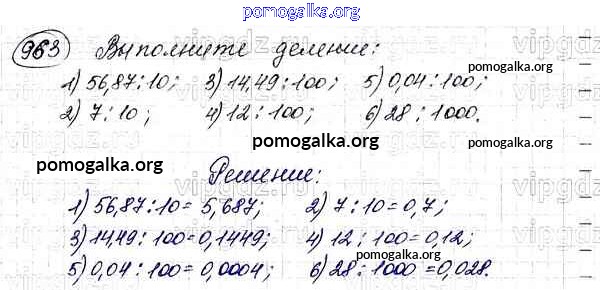 pomogalka.org
963 Выполните деление:
1) 56,87:10; 3) 14,49:100; 5) 0,04:100;
pomogalka.org
2) 7:10; 4) 12:100; 6) 28:1000.
pomogalka.org
pomogalka.org
Решение:
1) 56,87:10=5,687; 2) 7:10=0,7;
3) 14,49:100=0,1449; 4) 12:100=0,12;
5) 0,04:100=0,0004; 6) 28:1000=0,028.
pomogalka.org